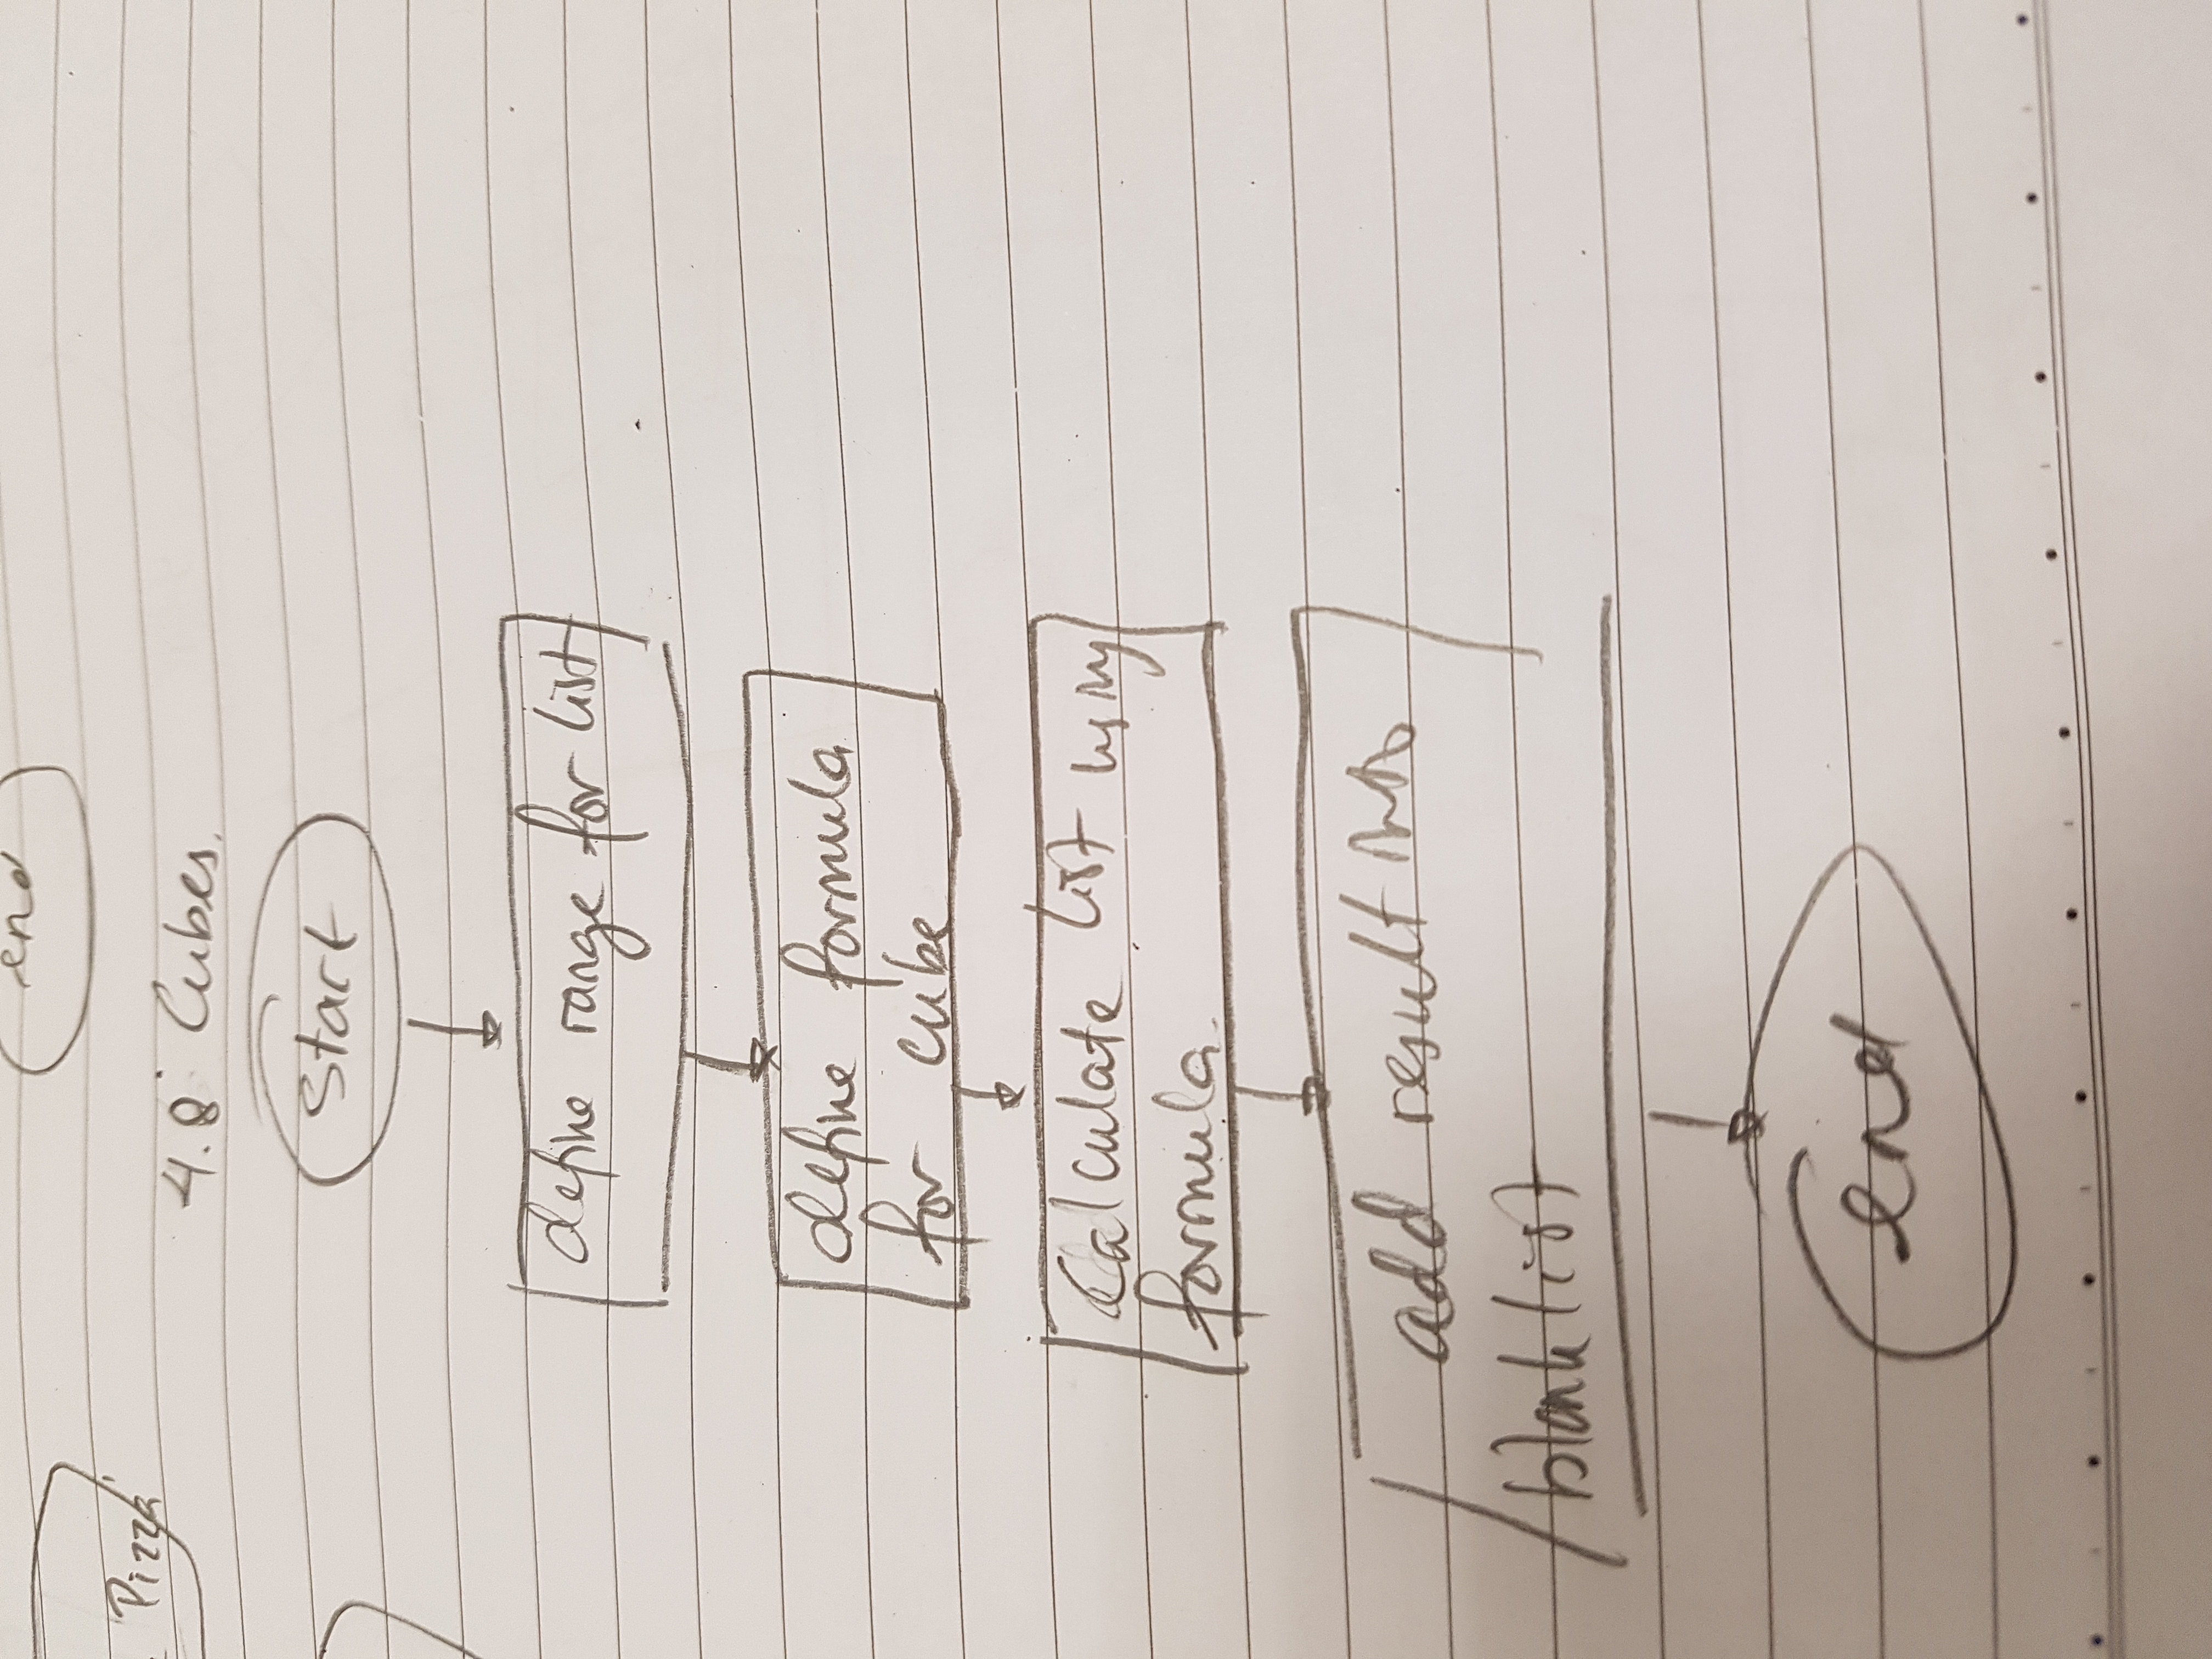 end
Pizza'
4.8 Cubes.
Start
define range for list
define formula
for cube
Calculate list using
formula.
add result into
blank list
end